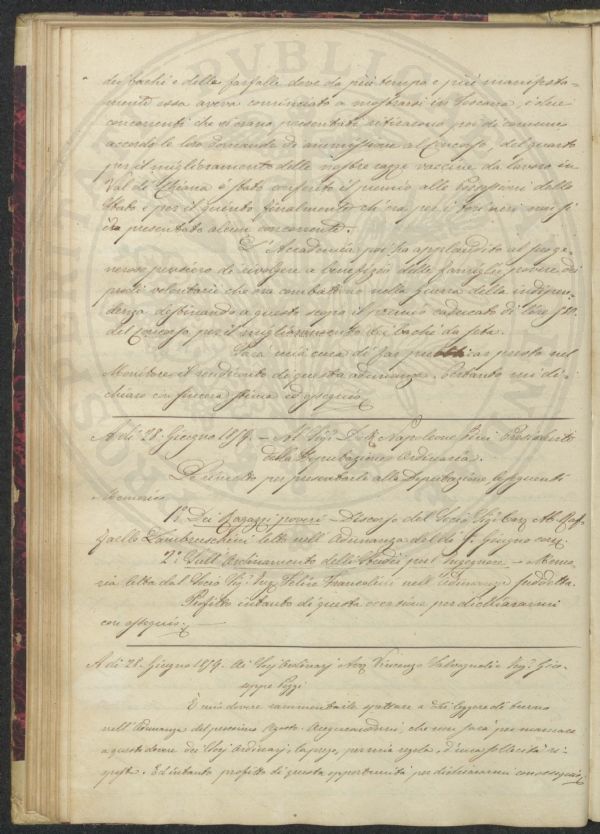 dei bachi e delle farfalle dove da più tempo e più manifesta-
mente essa aveva cominciato a mostrarsi in Toscana, i due
concorrenti che si erano presentati ritirarono poi di comune
accordo le loro domande di ammissione al Concorso, del quarto
per il miglioramento delle nostre razze vaccine da lavoro in
Val di Chiana è stato conferito il premio alle Possessioni dello
Stato e per il quinto finalmente ch'era per i non si
era presentato alcun concorrente.
L'Accademia poi ha applaudito al pro. ge-
neroso pensiero di rivolgere a benefizio delle famiglie povere dei
prodi volontari che ora combattono nella guerra della indipen-
denza destinando a questo scopo il premio caducato di Lire
del Concorso per il miglioramento dei bachi da seta.
Sarà mia cura di far pubblicar presto nel
Monitore il rendiconto di questa adunanza. Pertanto mi di-
chiaro con sincera stima ed ossequio
A dì 28. Giugno 1859. – Al Sigr. Dott. Napoleone Pini Presidente
della Deputazione Ordinaria.
Le rimetto per presentarle alla Deputazione le seguenti
Memorie
1.° Dei Ragazzi poveri – Discorso del Socio Sigr. Cav. Ab. Raf-
faello Lambruschini letto nell'Adunanza del dì 5. Giugno corr.
2.° Sull'Ordinamento delli Studii per l'Ingegnere – Memo-
ria letta dal Socio Sigr. Ing. Felice Francolini nell'Adunanza suddetta.
Profitto intanto di questa occasione per dichiararmi
con ossequio
A dì 28. Giugno 1859. Ai Socj Ordinarj Avv. Vincenzo Salvagnoli e Ing. Giu-
seppe Poggi
È mio dovere rammentarle spettare a Lei leggere di turno
nell'Adunanza del prossimo Agosto. Assicurandomi, che non sarà per mancare
a questo dovere dei Socj Ordinarj, la prego, per mia regola, d'una sollecita ri-
sposta. Ed intanto profitto di questa opportunità per dichiararmi con ossequio